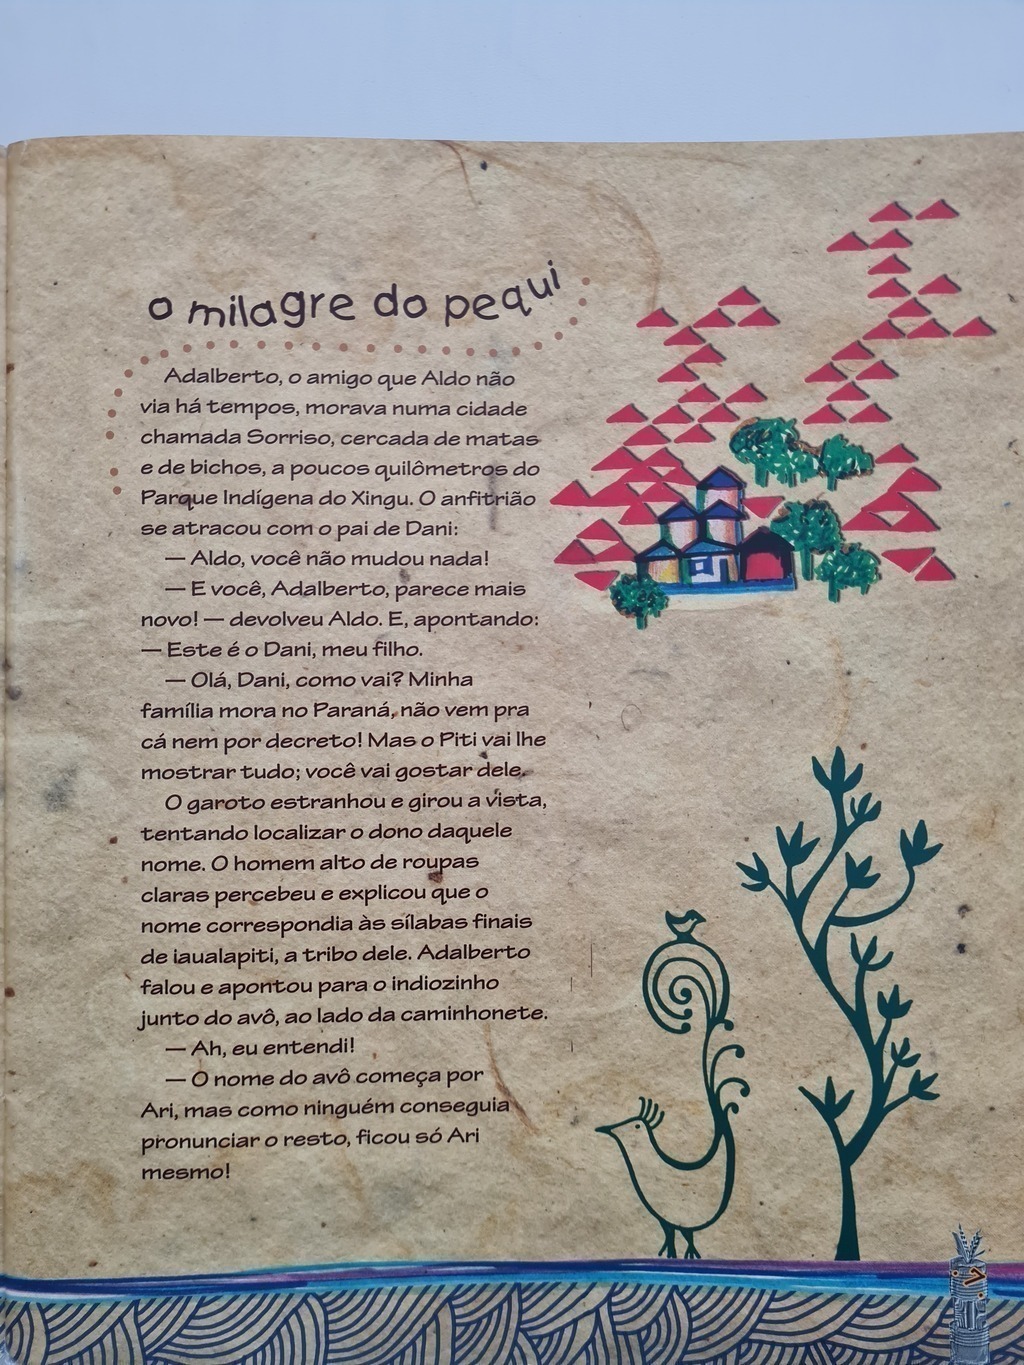 o milagre do pequi
Adalberto, o amigo que Aldo não
via há tempos, morava numa cidade
chamada Sorriso, cercada de matas
e de bichos, a poucos quilômetros do
Parque Indígena do Xingu. O anfitrião
se atracou com o pai de Dani:
— Aldo, você não mudou nada!
— E você, Adalberto, parece mais
novo! — devolveu Aldo. E, apontando:
— Este é o Dani, meu filho.
— Olá, Dani, como vai? Minha
família mora no Paraná, não vem pra
cá nem por decreto! Mas o Piti vai lhe
mostrar tudo; você vai gostar dele.
O garoto estranhou e girou a vista,
tentando localizar o dono daquele
nome. O homem alto de roupas
claras percebeu e explicou que o
nome correspondia às sílabas finais
de iaualapiti, a tribo dele. Adalberto
falou e apontou para o indiozinho
junto do avô, ao lado da caminhonete.
— Ah, eu entendi!
— O nome do avô começa por
Ari, mas como ninguém conseguia
pronunciar o resto, ficou só Ari
mesmo!